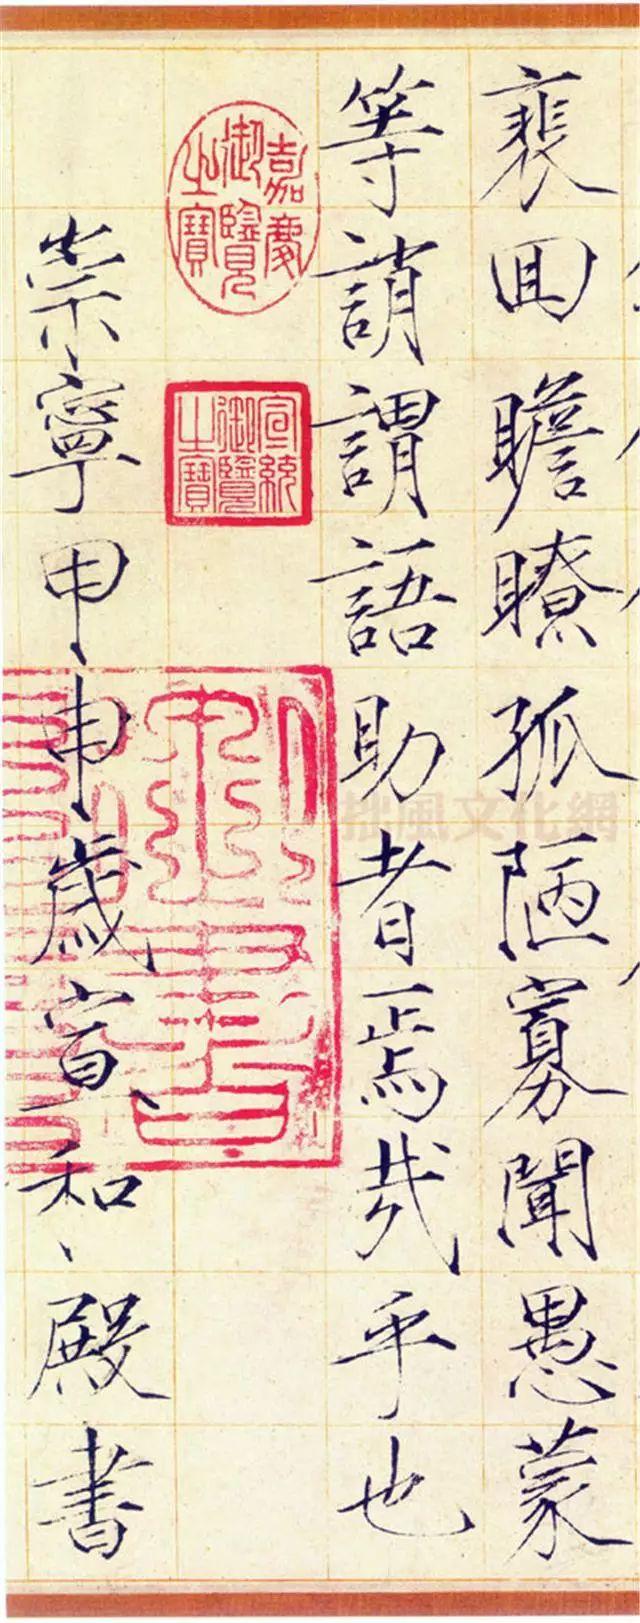 裵回瞻瞭孤陋寡聞愚蒙
等誚謂語助者焉哉乎也
嘉慶御覽之寶
宣統御覽之寶
崇寧甲申歲宣和殿書
拙風文化網